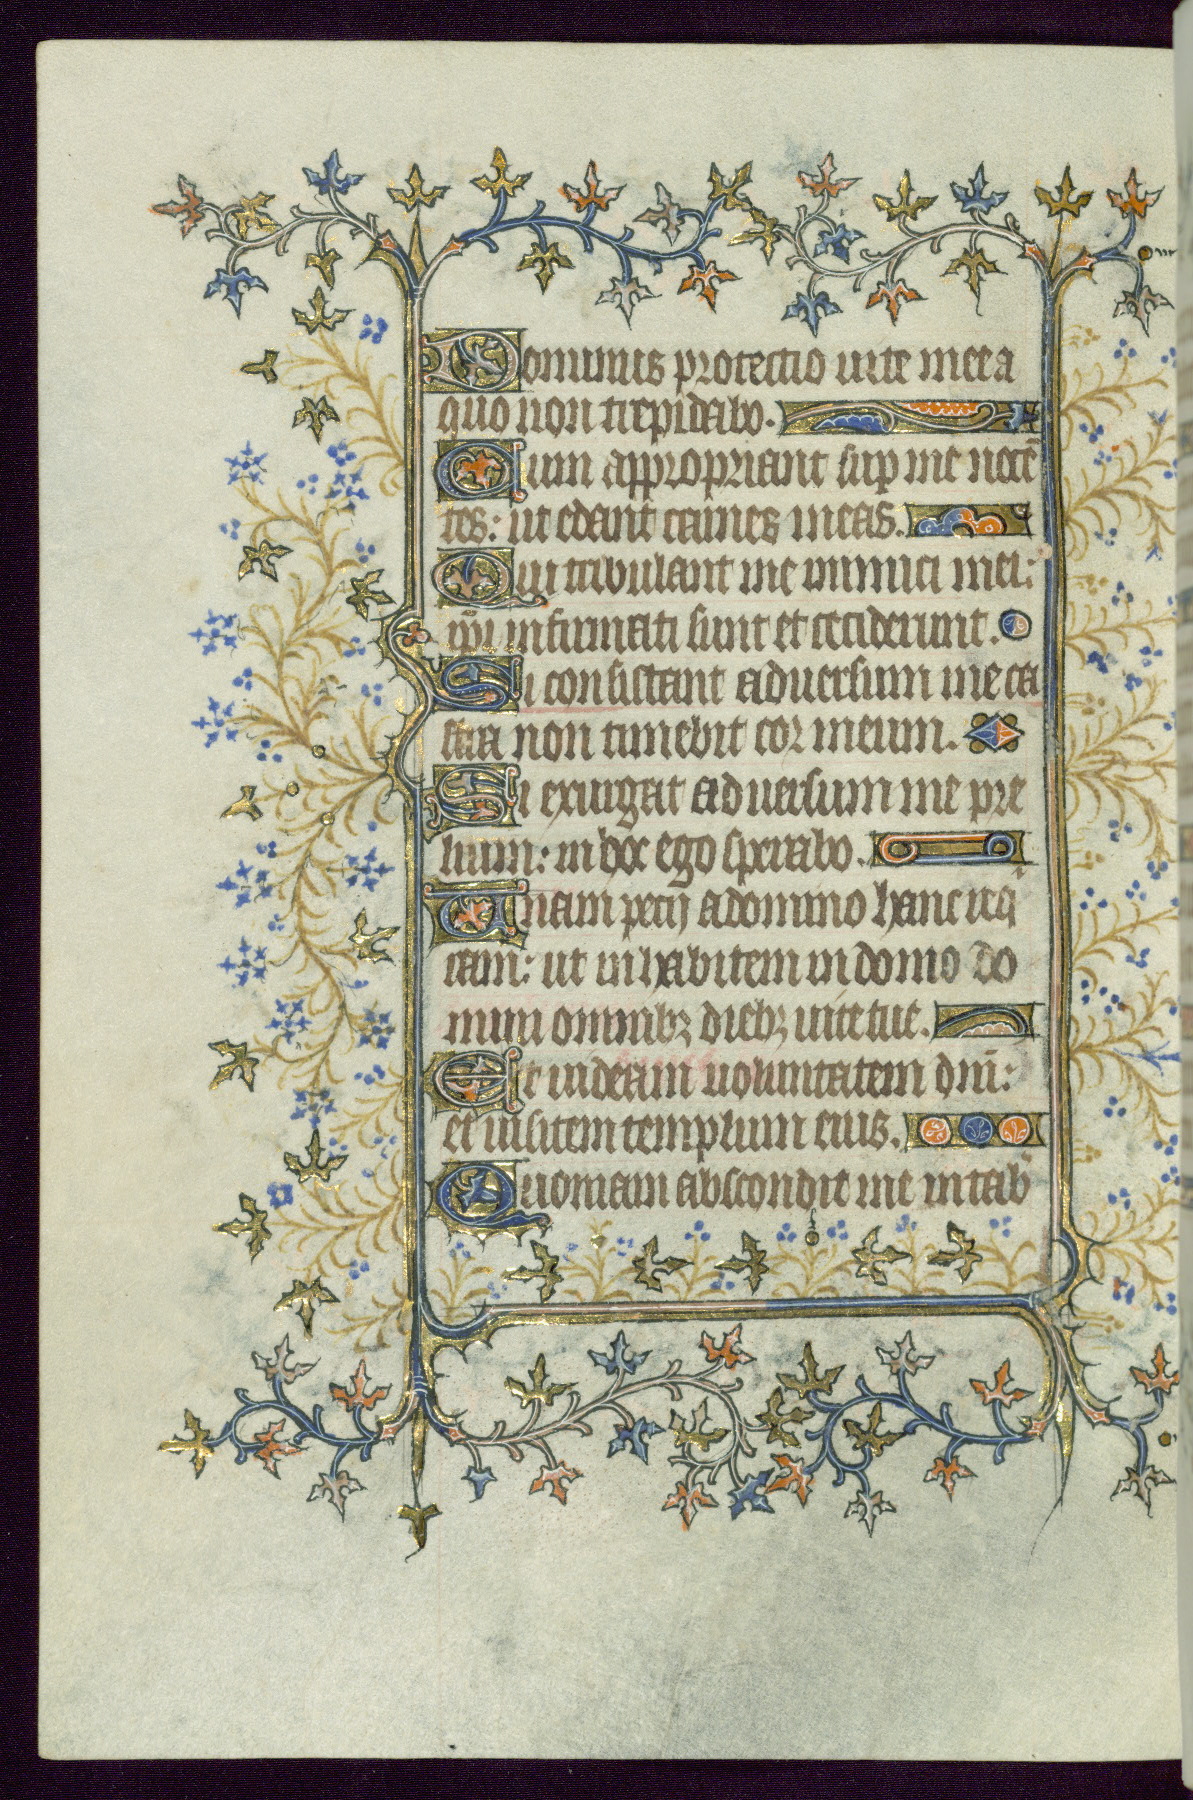 Dominus protectio uite mee a
quo non trepidabo.
Cum appropriant sup me nocē
tes: ut edant carnes meas.
Qui tribulant me inimici mei:
ip̄i infirmati sunt et ceciderunt.
Si consistant aduersum me ca
stra non timebit cor meum.
Si exurgat aduersum me pre
lium: in hoc ego sperabo.
Unam pecij a domino hanc req
ram: ut inhabitem in domo do
mini omnibꝫ diebꝫ uite tue.
Et uideam uoluntatem dn̄i:
et uisitem templum eius.
Quoniam abscondit me in tab